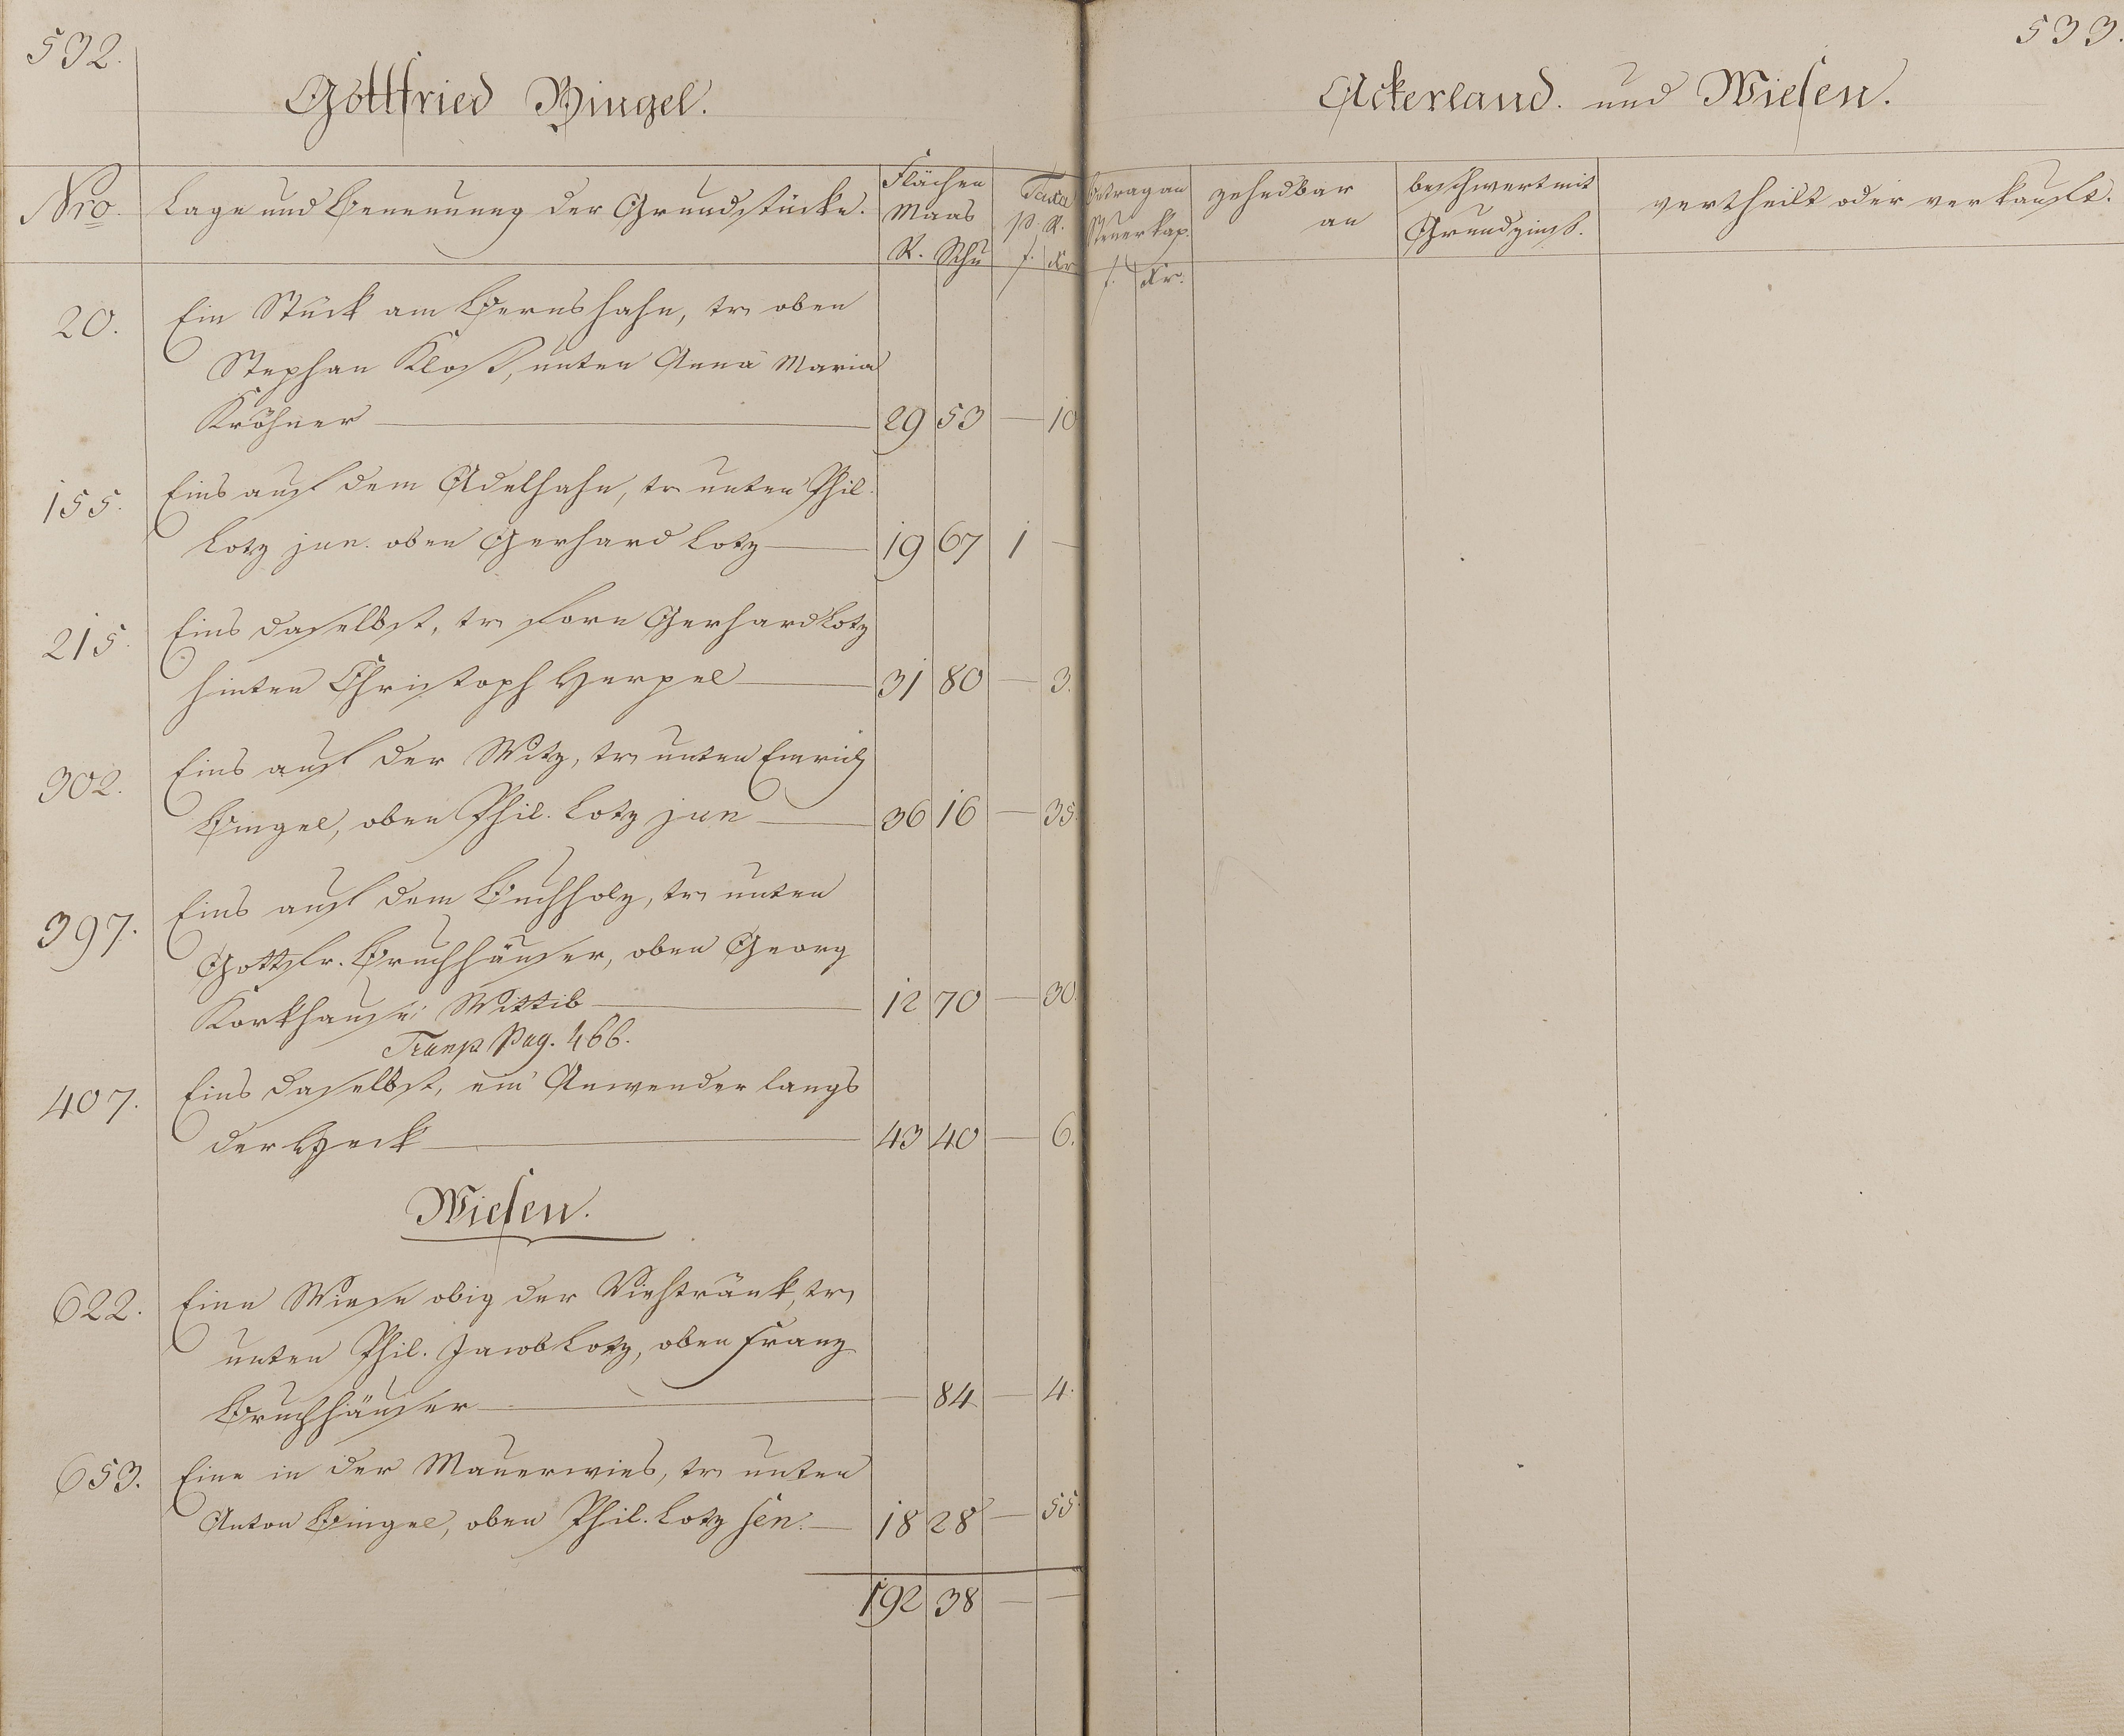 532.
Gottfried Bingel.
Nro.
Lage und Benennung der Grundstücke.
Flächen
Maas
R. Schu
Taxa
p. R.
f. Kr
20.
Ein Stück am Bernshahn, tr. oben
Stephan Kloß, unten Anna Maria
Kröhner — 29 53 — 10
155.
Eins auf dem Adelhahn, tr. unten Phil.
Lotz jun. oben Gerhard Lotz — 19 67 1 —
215.
Eins daselbst, tr. forn Gerhard Lotz
hinten Christoph Herpel — 31 80 — 3.
302.
Eins auf der Witz, tr. unten Emrich
Bingel, oben Phil. Lotz jun — 36 16 — 35.
397.
Eins auf dem Buchholz, tr. unten
Gottfr. Bruchhäuser, oben Georg
Korkhaus Wittib — 12 70 — 30.
Transp. Pag. 466.
407.
Eins daselbst, ein Anwender langs
der Heck — 43 40 — 6.
Wiesen.
622.
Eine Wiese obig der Viehtränk, tr.
unten Phil. Jacob Lotz, oben Franz
Bruchhäuser — — 84 — 4.
653.
Eine in der Mauerwies, tr. unten
Anton Bingel, oben Phil. Lotz sen. — 18 28 — 55.
192 38 — —
533.
Ackerland. und Wiesen.
Betrag an
Steuerkap.
f. Kr.
zehndbar
an
beschwert mit
Grundzinß.
vertheilt oder verkauft.